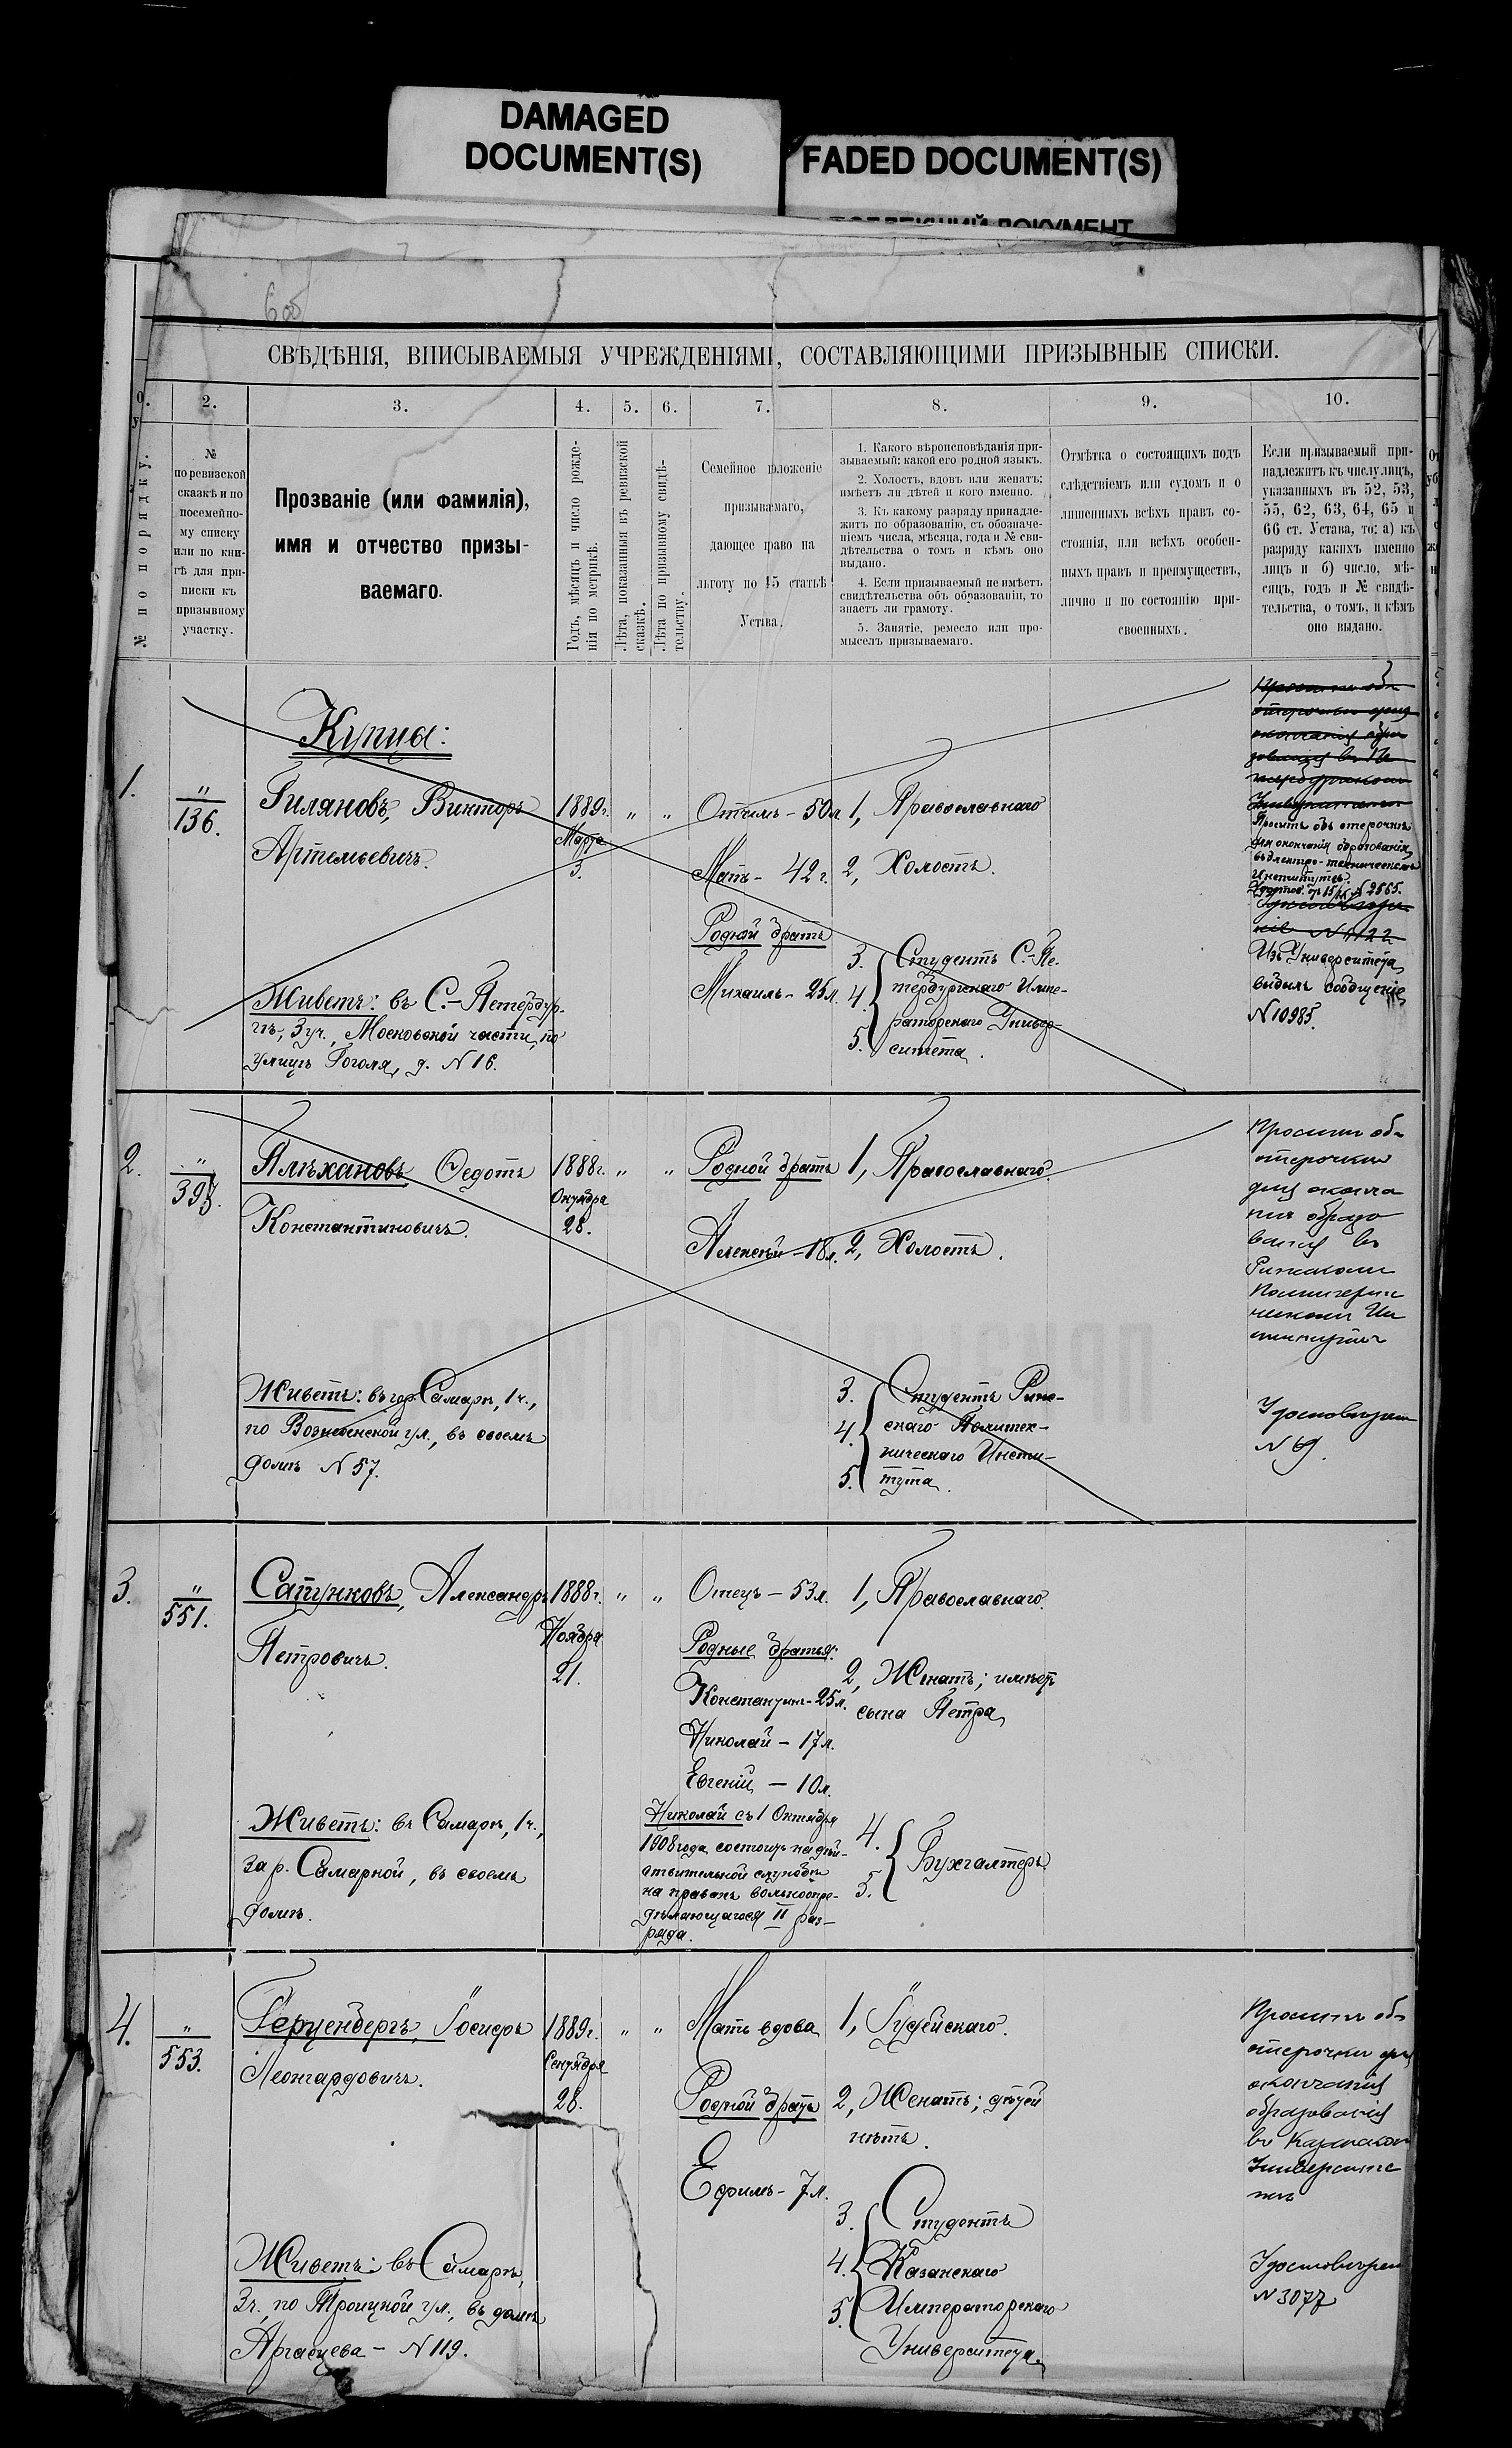 DAMAGED
DOCUMENT(S)
FADED DOCUMENT(S)
СВѢДѢНІЯ, ВПИСЫВАЕМЫЯ УЧРЕЖДЕНІЯМИ, СОСТАВЛЯЮЩИМИ ПРИЗЫВНЫЕ СПИСКИ.
2.
3.
4.
5.
6.
7.
8.
9.
10.
№ по порядку.
№
по ревизской
сказкѣ и по
посемейно-
му списку
или по кни-
гѣ для при-
писки къ
призывному
участку.
Прозваніе (или фамилія),
имя и отчество призы-
ваемаго.
Годъ, мѣсяцъ и число рожде-
нія по метрикѣ.
Лѣта, показанныя въ ревизской
сказкѣ.
Лѣта по призывному свидѣ-
тельству.
Семейное положеніе
призываемаго,
дающее право на
льготу по 45 статьѣ
Устава.
1. Какого вѣроисповѣданія при-
зываемый: какой его родной языкъ.
2. Холостъ, вдовъ или женатъ;
имѣетъ ли дѣтей и кого именно.
3. Къ какому разряду принадле-
житъ по образованію, съ обозначе-
ніемъ числа, мѣсяца, года и сви-
дѣтельства о томъ и кѣмъ оно
выдано.
4. Если призываемый не имѣетъ
свидѣтельства объ образованіи, то
знаетъ ли грамоту.
5. Занятіе, ремесло или про-
мыселъ призываемаго.
Отмѣтка о состоящихъ подъ
слѣдствіемъ или судомъ и о
лишенныхъ всѣхъ правъ со-
стоянія, или всѣхъ особен-
ныхъ правъ и преимуществъ,
лично и по состоянію при-
своенныхъ.
Если призываемый при-
надлежитъ къ числу лицъ,
указанныхъ въ 52, 53,
55, 62, 63, 64, 65 и
66 ст. Устава, то: а) къ
разряду какихъ именно
лицъ и б) число, мѣ-
сяцъ, годъ и № свидѣ-
тельства, о томъ, и кѣмъ
оно выдано.
Купцы:
1.
" 136.
Гиляновъ, Викторъ
Артемьевичъ.
Живетъ: въ С.-Петербур-
гѣ, 3 уч., Московской части, по
улицѣ Гоголя, д. N 16.
1889 г.
Марта
3.
" "
Отчимъ - 50 л.
Мать - 42 г.
Родной братъ
Михаилъ - 25 л.
1, Православнаго
2, Холостъ.
3. Студентъ С.-Пе-
4. тербургскаго Импе-
раторскаго Универ-
5. ситета.
Проситъ объ отсрочкѣ
для окончанія образованія
въ Электро-техническомъ
Институтѣ.
N 2565.
Изъ Университета
выбылъ сообщеніе
N 10985.
2.
" 397.
Плѣхановъ Федотъ
Константиновичъ.
Живетъ: въ гор. Самарѣ, 1 ч.,
по Вознесенской ул., въ своемъ
домѣ N 57.
1888 г.
Октября
28.
" "
Родной братъ
Алексѣй - 18 л.
1, Православнаго.
2, Холостъ.
3. Студентъ Риж-
4. скаго Политех-
ническаго Инсти-
5. тута.
Проситъ объ
отсрочкѣ
для оконча
нія образо
ванія въ
Рижскомъ
Политехни
ческомъ Ин
ститутѣ
Удостовѣрен
N 69.
3.
" 551.
Сапунковъ, Александръ
Петровичъ.
Живетъ: въ Самарѣ, 1 ч.,
за р. Самаркой, въ своемъ
домѣ.
1888 г.
Ноября
21.
" "
Отецъ - 53 л.
Родные братья:
Константинъ - 25 л.
Николай - 17 л.
Евгеній - 10 л.
Николай съ 1 Октября
1908 года состоитъ на дѣй-
ствительной службѣ
на правахъ вольноопре-
дѣляющагося II раз-
ряда.
1, Православнаго.
2, Женатъ; имѣетъ
сына Петра
4.
5. Бухгалтеръ.
4.
" 553.
Герценбергъ, Іосифъ
Леонгардовичъ.
Живетъ: въ Самарѣ,
3 ч., по Троицкой ул., въ домѣ
N 119.
1889 г.
Сентября
28.
" "
Мать вдова
Родной братъ
Ефимъ - 7 л.
1, Іудейскаго.
2, Женатъ; дѣтей
нѣтъ.
3. Студентъ
4. Казанскаго
Императорскаго
5. Университета.
Проситъ объ
отсрочкѣ для
окончанія
образованія
въ Казанском
Университе
тѣ
Удостовѣрен
N 3077